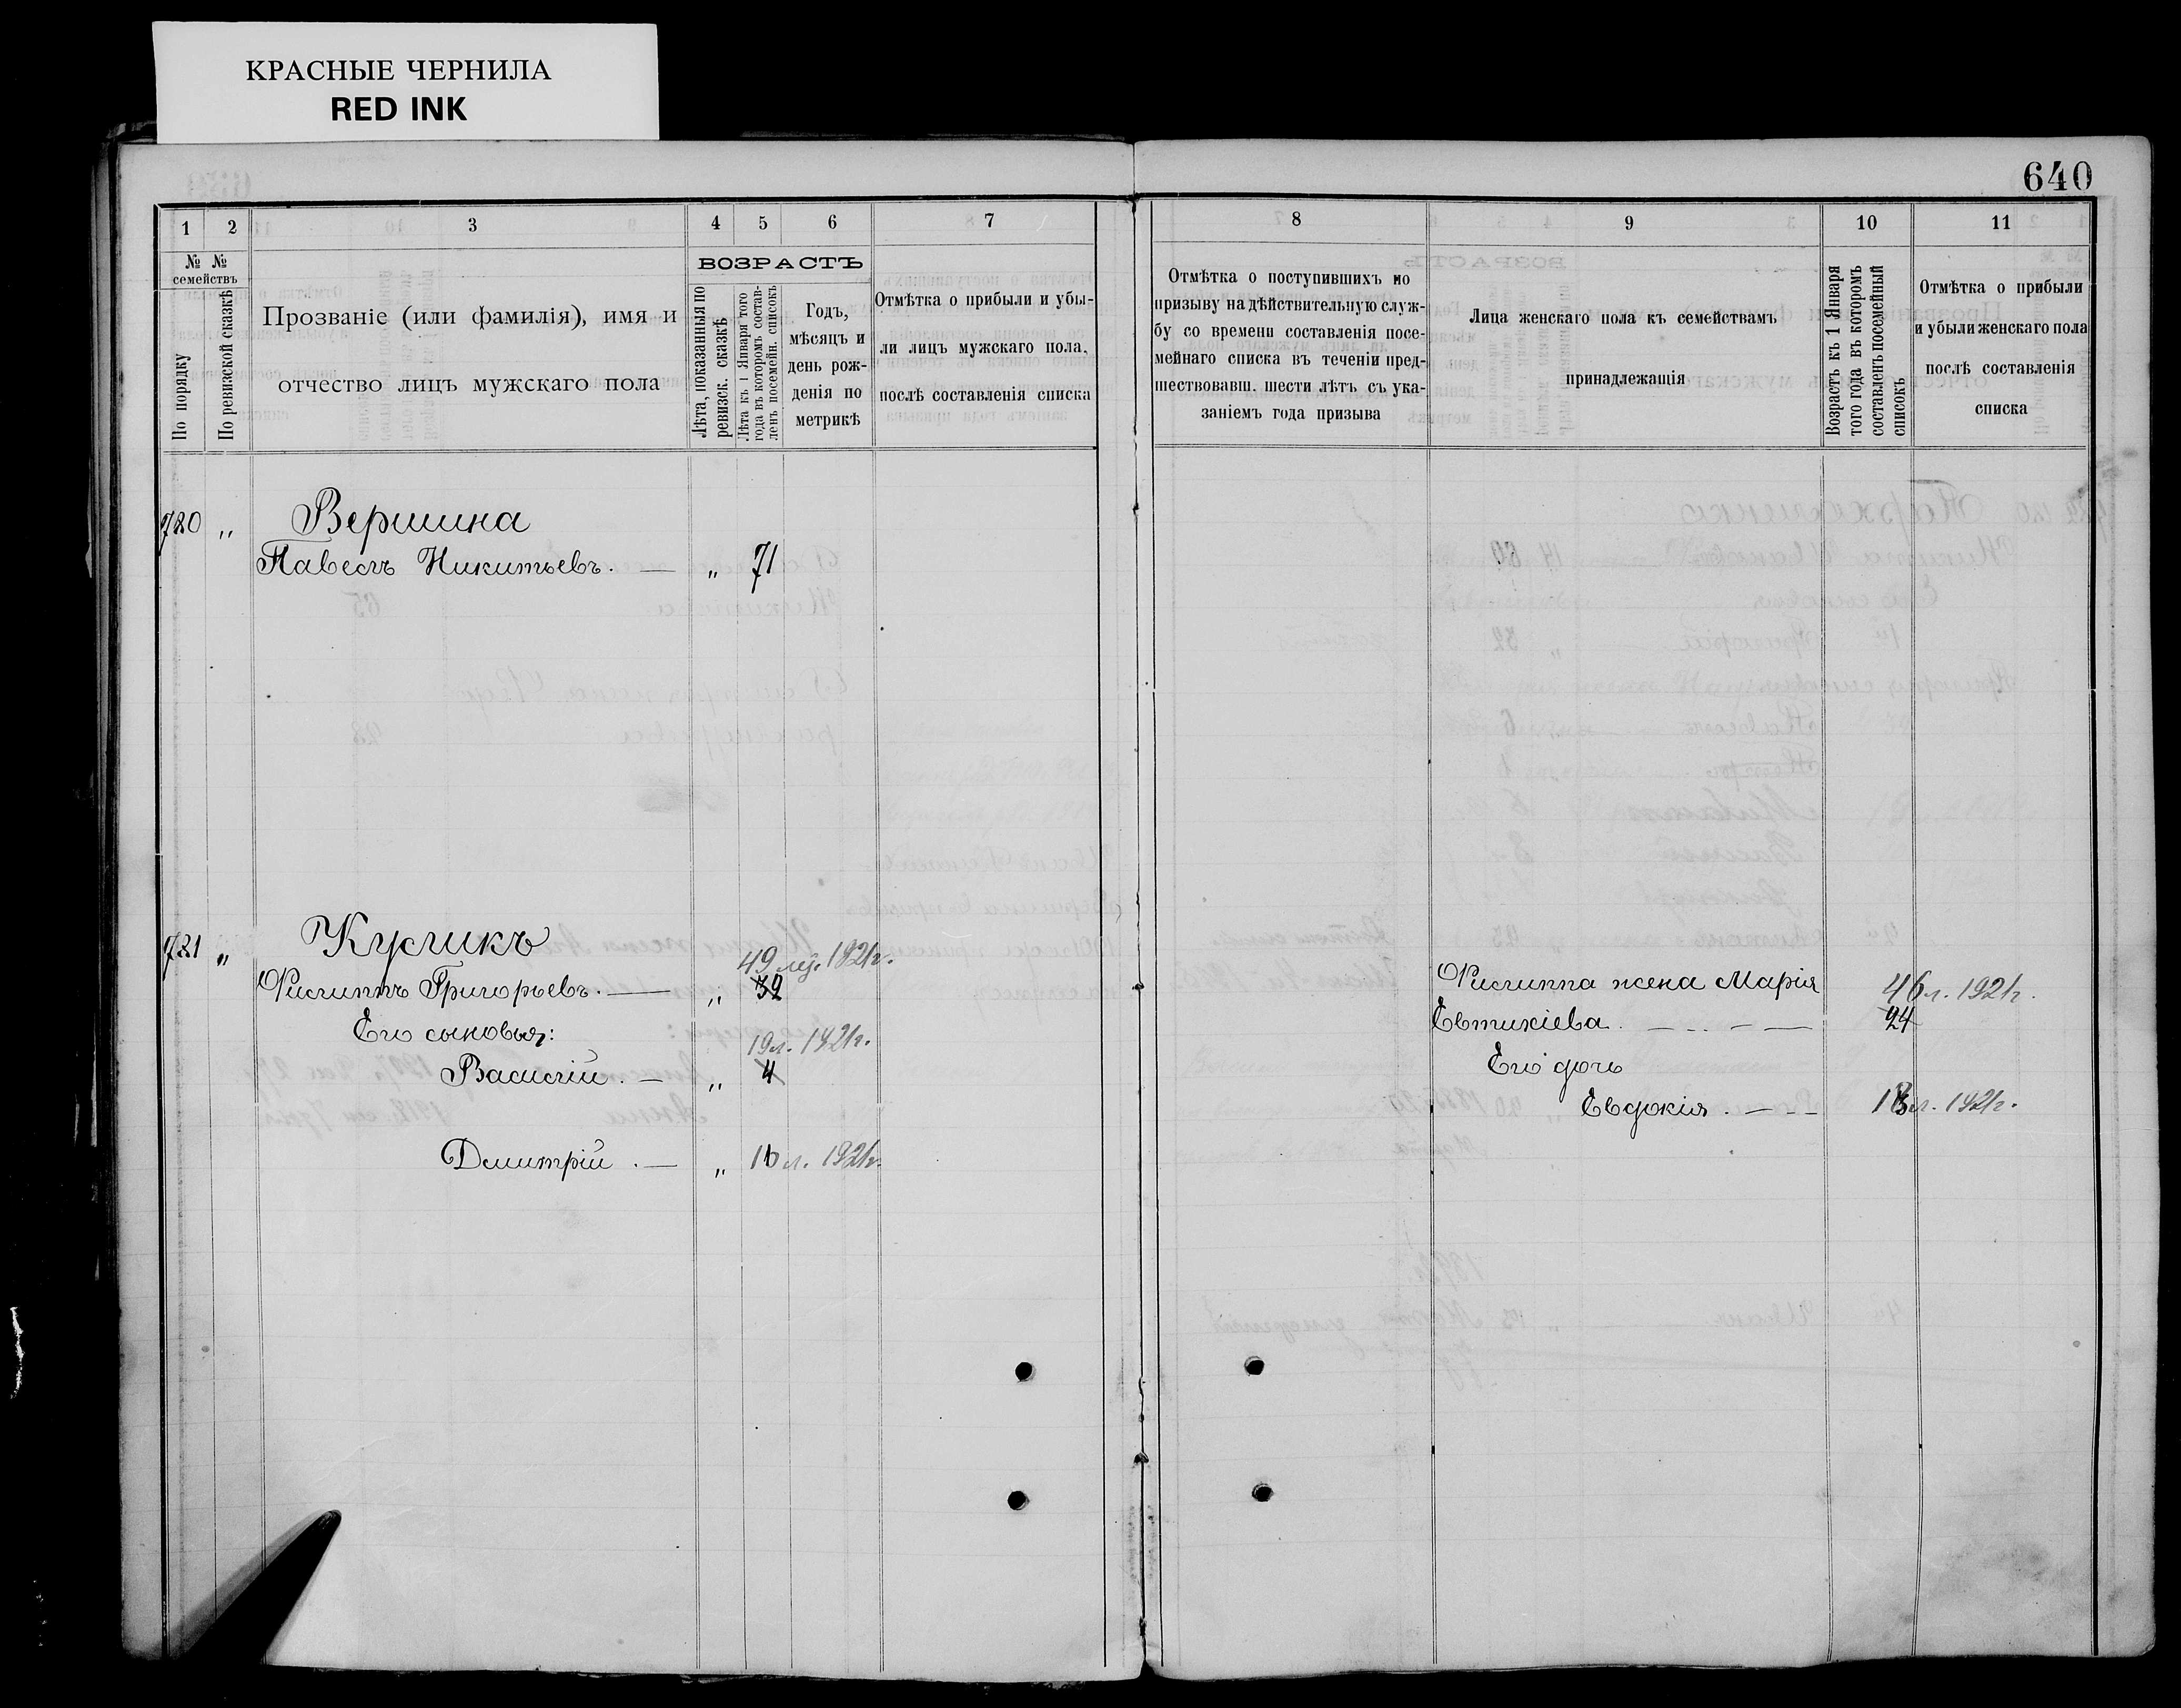 КРАСНЫЕ ЧЕРНИЛА
RED INK
640
1 2 3 4 5 6 7
№ № семействъ
По порядку
По ревизской сказкѣ
Прозваніе (или фамилія), имя и
отчество лицъ мужскаго пола
ВОЗРАСТЪ
Лѣта, показанныя по
ревизск. сказкѣ
Лѣта къ 1 Января того
года въ которомъ состав-
ленъ посемейн. списокъ
Годъ,
мѣсяцъ и
день рож-
денія по
метрикѣ
Отмѣтка о прибыли и убы-
ли лицъ мужскаго пола,
послѣ составленія списка
720 „ Вершина
Павелъ Никитьевъ. — „ 71
721 „ Куликъ
49 лѣ. 1921г.
Филиппъ Григорьевъ. — „ 32
Его сыновья:
19 л. 1921г.
Василій. — „ 4
Димитрій. — „ 16 л. 1921г.
8 9 10 11
Отмѣтка о поступившихъ по
призыву на дѣйствительную служ-
бу со времени составленія посе-
мейнаго списка въ теченіи пред-
шествовавш. шести лѣтъ съ ука-
заніемъ года призыва
Лица женскаго пола къ семействамъ
принадлежащія
Возрастъ къ 1 Января
того года въ которомъ
составленъ посемейный
списокъ
Отмѣтка о прибыли
и убыли женскаго пола
послѣ составленія
списка
Филиппа жена Марія 46 л. 1921г.
Евтихіева. — 24
Его дочь
Евдокія. — л. 1921г.